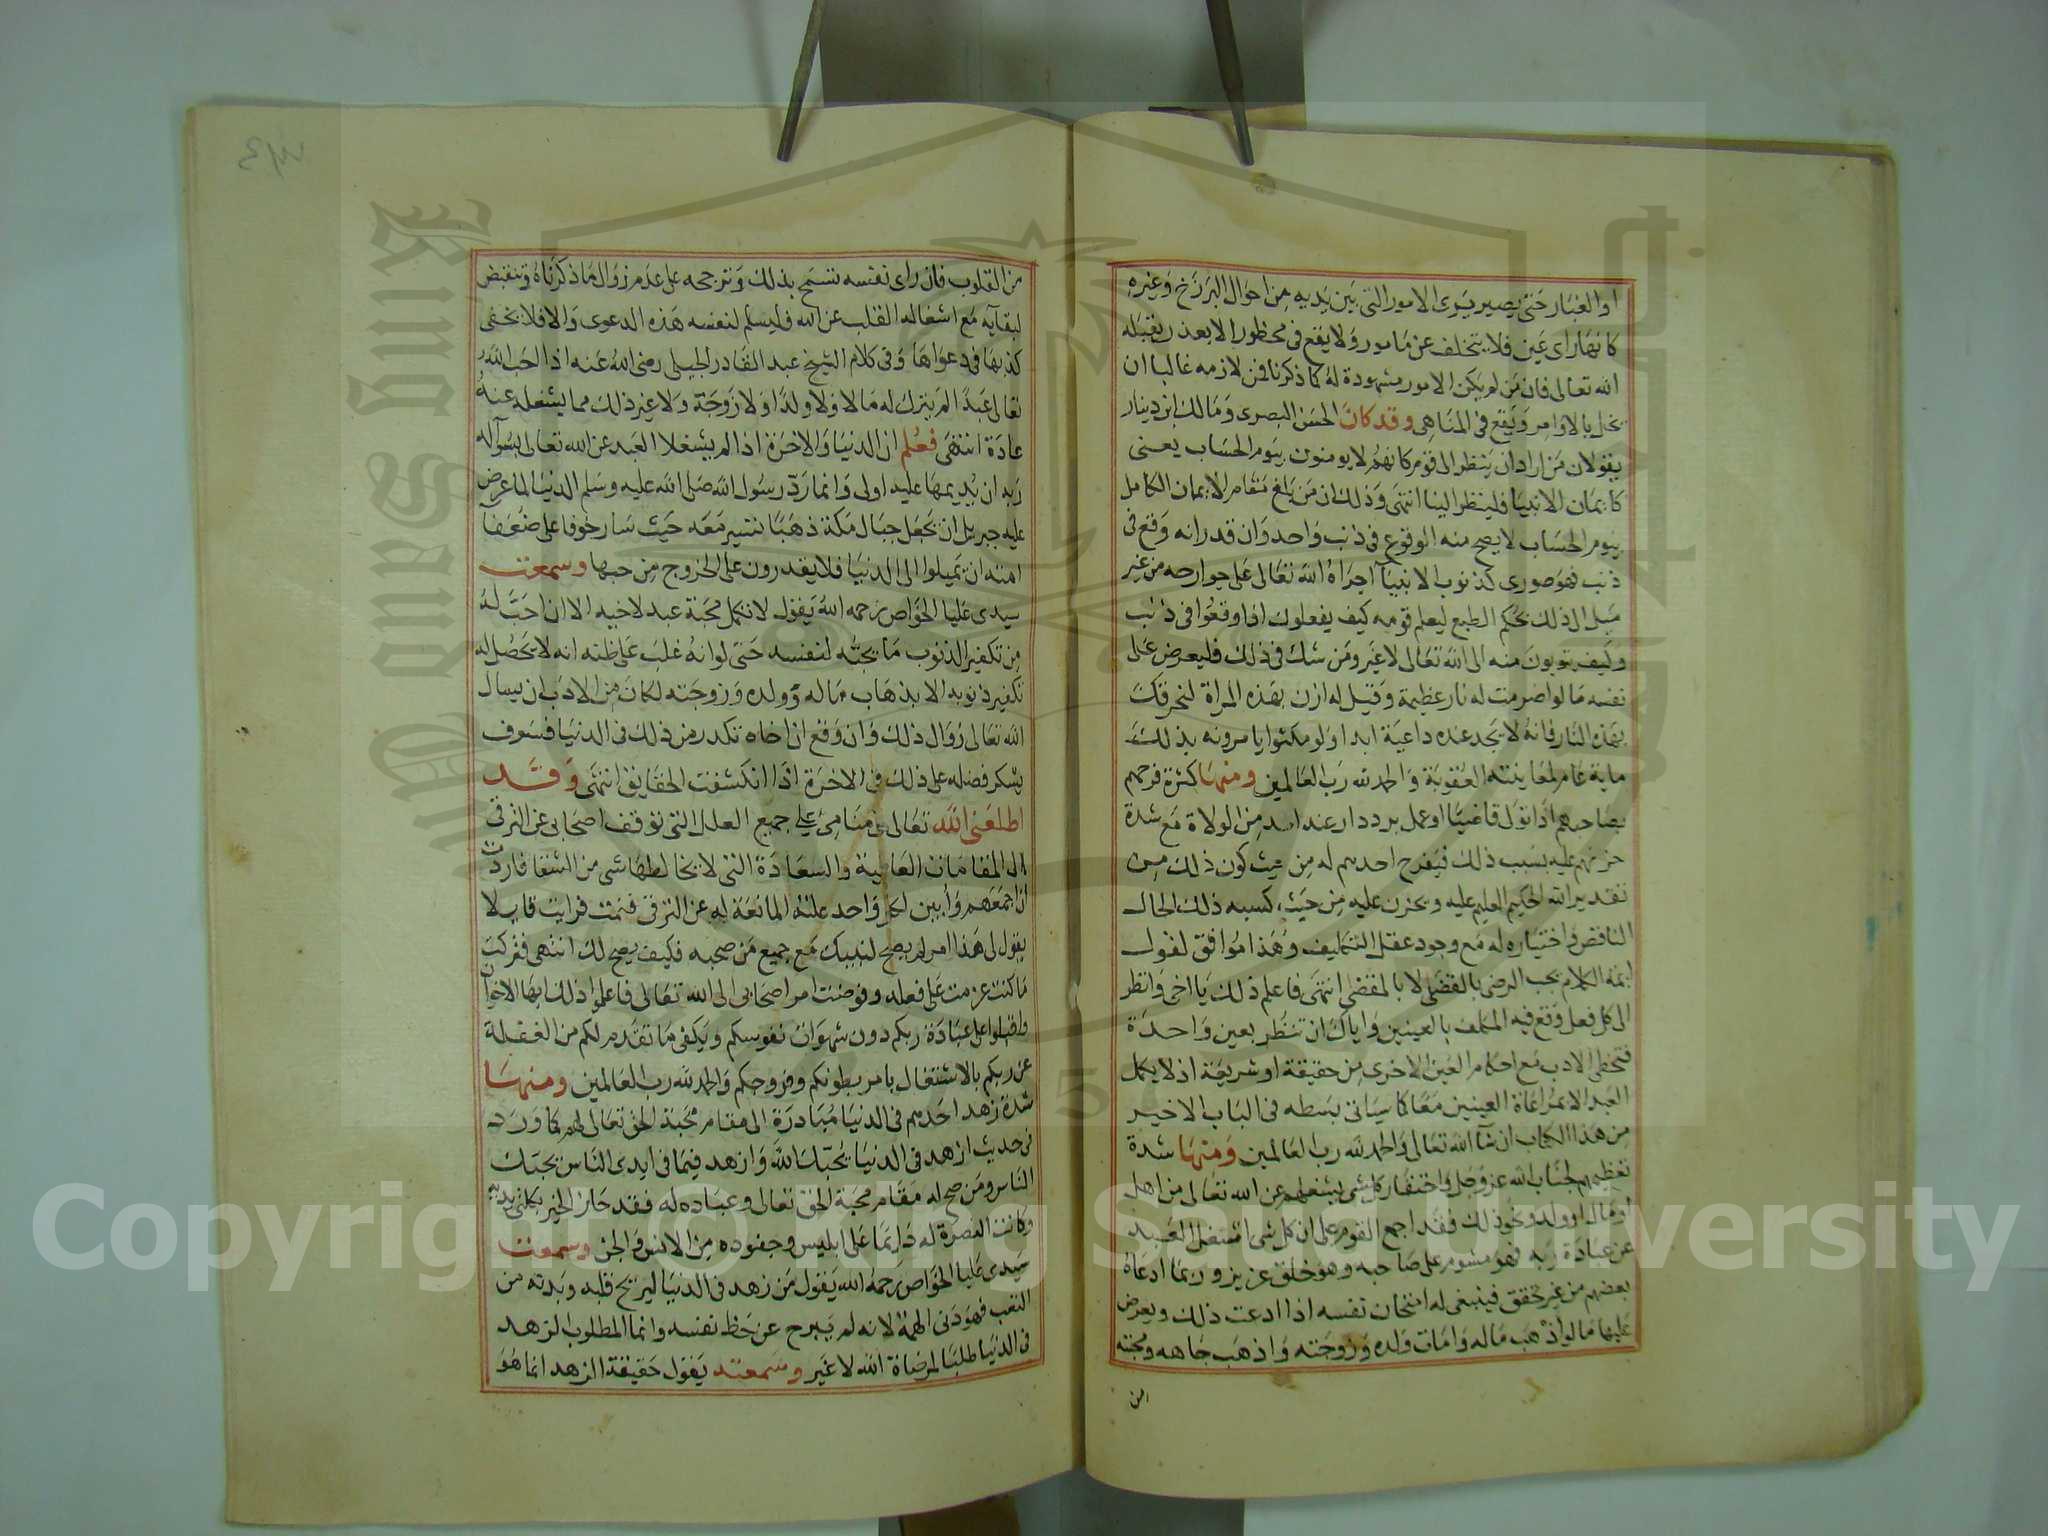 او الغبار حتى يصير يرى الامور التي بين يديه من احوال البرزخ وغيره
كانها راى عين فلا يتخلف عن مامور ولا يقع في محظور الا بعذر يقبله
الله تعالى فان من لم يكن الامور مشهودة له كما ذكرنا فمن لازمه غالبا ان
يخل بالاوامر ويقع في المناهى وقد كان الحسن البصرى ومالك ابن دينار
يقولان من اراد ان ينظر الى قوم كانهم لا يومنون بيوم الحساب يعنى
كايمان الانبيا فلينظر الينا انتهى وذلك ان من بلغ مقام الايمان الكامل
بيوم الحساب لا يصح منه الوقوع في ذنب واحد وان قدر انه وقع في
ذنب فهو صورى كذنوب الانبيآ اجراه الله تعالى على جوارحه من غير
ميل الى ذلك بحكم الطبع ليعلم قومه كيف يفعلون اذا وقعوا في ذنب
وكيف يتوبون منه الى الله تعالى لا غير ومن شك في ذلك فليعرض على
نفسه ما لو اضرمت له نار عظيمة وقيل له ازن بهذه المراة لنحرقك
بهذه النار فانه لا يجد عنده داعية ابدا ولو مكثوا يامرونه بذلك
ماية عام لمعاينته العقوبة والحمد لله رب العالمين ومنها كثرة فرحهم
بصاحبهم اذا تولى قاضيا او عمل برددار عند احد من الولاة مع شدة
حزنهم عليه بسبب ذلك فيفرح احدهم له من حيث كون ذلك من
تقدير الله الحكيم العليم عليه ويحزن عليه من حيث كسبه ذلك الحال
الناقص واختياره له مع وجود عقل التكليف وهذا موافق لقول
ايمة الكلام يجب الرضى بالقضى لا بالمقضى انتهى فاعلم ذلك يا اخى وانظر
الى كل فعل وقع فيه المكلف بالعينين واياك ان تنظر بعين واحدة
فتخطى الادب مع احكام العين الاخرى من حقيقة او شريعة اذ لا يكمل
العبد الا بمراعاة العينين معا كما سياتى بسطه في الباب الاخير
من هذا الكتاب ان شآ الله تعالى والحمد لله رب العالمين ومنها شدة
تعظيمهم لجناب الله عز وجل واحتقار كل شى يشغلهم عن الله تعالى من اهل
او مال او ولد ونحو ذلك فقد اجمع القوم على ان كل شى اشغل العبد
عن عبادة ربه فهو مشوم على صاحبه وهو خلق عزيز وربما ادعاه
بعضهم من غير تحقق فينبغى له امتحان نفسه اذا ادعت ذلك ويعرض
عليها ما لو اذهب ماله وامات ولده وزوجته واذهب جاهه ومحبته
من
من القلوب فان راى نفسه تسمح بذلك وترجحه على عدم زوال ما ذكرناه وتنقبض
لبقآيه مع اشغاله القلب عن الله فليسلم لنفسه هذه الدعوى والا فلا يخفى
كذبها في دعواها وفي كلام الشيخ عبد القادر الجيلى رضى الله عنه اذا احب الله
تعالى عبدا لم يترك له مالا ولا ولدا ولا زوجة ولا غير ذلك مما يشغله عنه
عادة انتهى فعلم ان الدنيا والاخرة اذا لم يشغلا العبد عن الله تعالى بسوآله
ربه ان يديمها عليه اولى وانما رد رسول الله صلى الله عليه وسلم الدنيا لما عرض
عليه جبريل ان يجعل جبال مكة ذهبا تسير معه حيث سار خوفا على ضعفآ
امته ان يميلوا الى الدنيا فلا يقدرون على الخروج من حبها وسمعت
سيدى عليا الخواص رحمه الله يقول لا تكمل محبة عبد لاخيه الا ان احب له
من تكفير الذنوب ما يحبه لنفسه حتى لو انه غلب على ظنه انه لا يحصل له
تكفير ذنوبه الا بذهاب ماله وولده وزوجته لكان من الادب ان يسال
الله تعالى زوال ذلك وان وقع ان اخاه تكدر من ذلك في الدنيا فسوف
يشكر فضله على ذلك في الاخرة اذا انكشفت الحقايق انتهى وقد
اطلعنى الله تعالى في منامى على جميع العلل التى توقف اصحابى عن الترقى
الى المقامات العالية والسعادة التى لا يخالطها شى من الشقا فاردت
ان اجمعهم وأبين لكل واحد علته المانعة له عن الترقى فنمت فرايت قايلا
يقول لى هذا امر لم يصح لنبيك مع جميع من صحبه فكيف يصح لك انتهى فتركت
ما كنت عزمت على فعله وفوضت امر اصحابى الى الله تعالى فاعلموا ذلك ايها الاخوان
واقبلوا على عبادة ربكم دون شهوات نفوسكم ويكفى ما تقدم لكم من الغفلة
عن ربكم بالاشتغال بامر بطونكم وفروجكم والحمد لله رب العالمين ومنها
شدة زهد احدهم في الدنيا مبادرة الى مقام محبة الحق تعالى لهم كما ورد
في حديث ازهد في الدنيا يحبك الله وازهد فيما في ايدى الناس يحبك
الناس ومن صح له مقام محبة الحق تعالى وعباده له فقد حاز الخير بكلتى يديه
وكانت النصرة له دايما على ابليس وجنوده من الانس والجن وسمعت
سيدى عليا الخواص رحمه الله يقول من زهد في الدنيا ليريح قلبه وبدنه من
التعب فهو دنى الهمة لانه لم يبرح عن حظ نفسه وانما المطلوب الزهد
في الدنيا طلبا لمرضاة الله لا غير وسمعته يقول حقيقة الزهد انما هو
Copyright © King Saud University